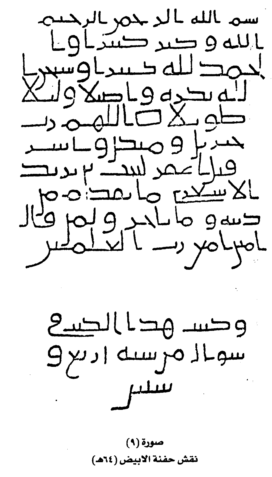 بسم الله الرحمن الرحيم
الله وكبر كبيرا وا
لحمد لله كثيرا وسبحن ا
لله بكرة واصيلا وليلا
طويلا اللهم رب
جبريل وميكل واسر
فيل اغفر لثبت بن يزيد
الاشعري ما تقدم من
ذنبه وما تاخر ولمن قال
امين امين رب العلمين
وكتبت هذا الكتب في
شوال من سنة اربع و
ستين
صورة (٩)
نقش حفنة الابيض (٦٤هـ)